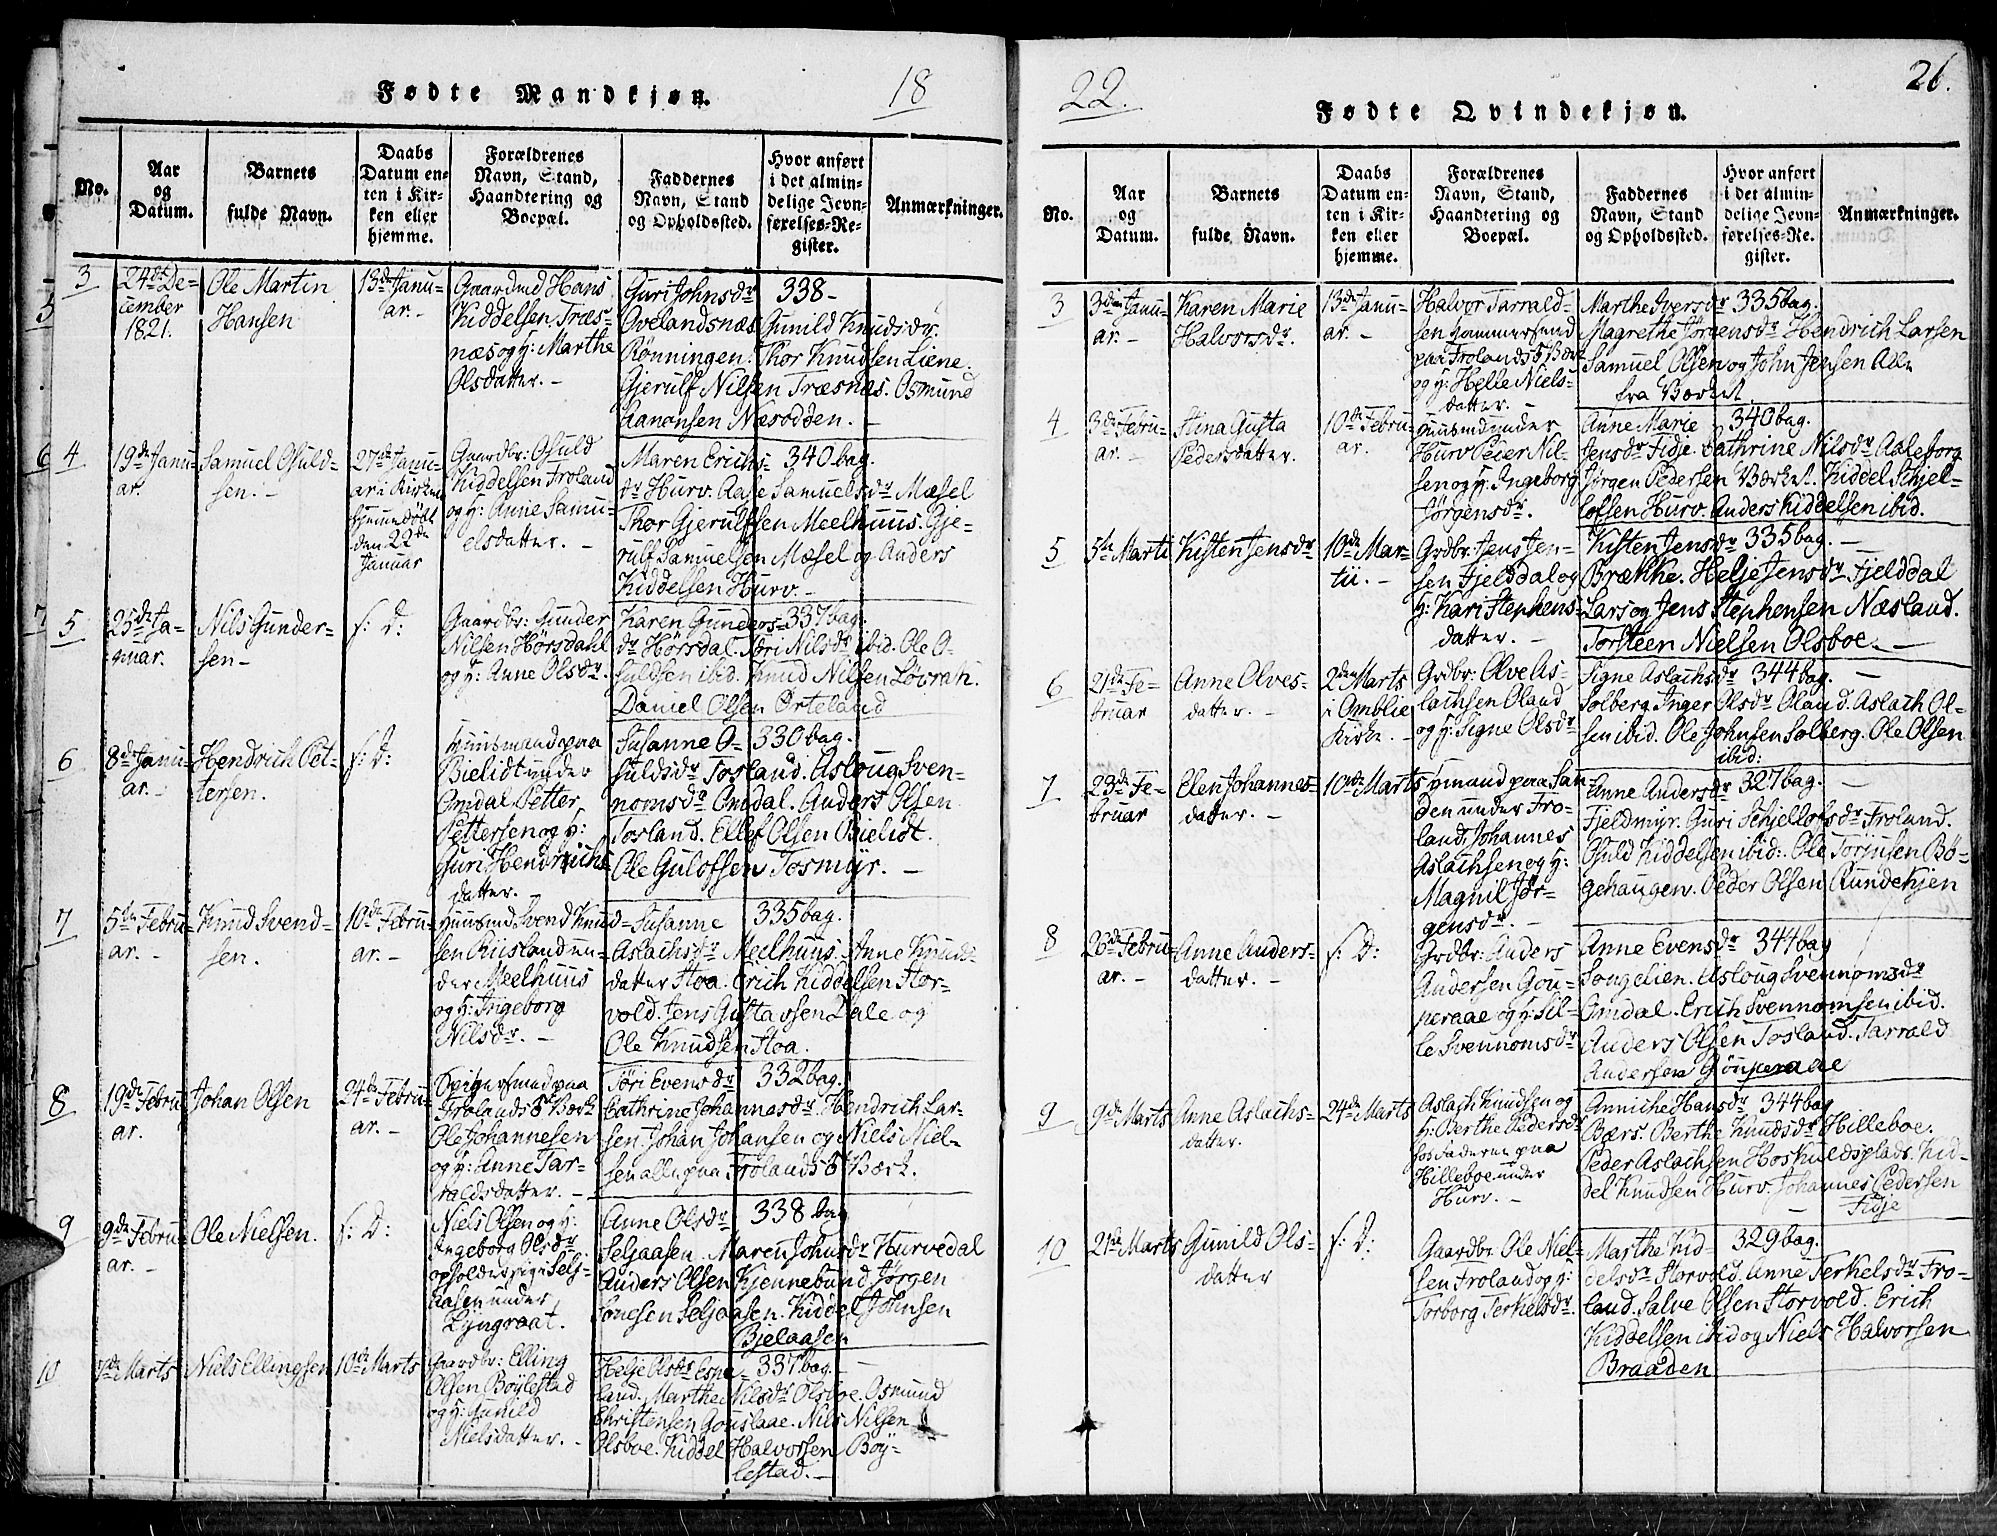 Fødte Mandkjøn.
18
No.
Aar
og
Datum.
Barnets
fulde Navn.
Daabs
Datum en-
ten i Kir-
ken eller
hjemme.
Forældrenes
Navn, Stand,
Haandtering og
Boepæl.
Faddernes
Navn, Stand
og Opholdssted.
Hvor anført
i det almin-
delige Jevn-
førelses-Re-
gister.
Anmærkninger.
3
24de De-
cember
1821.
Ole Martin
Hansen
13de Janu-
ar. -
Gaardmd Hans
Kiddelsen Træs-
næs og H: Marthe
Olsdatter. -
Guri Johnsdr 338 -
Ovelandsnæs Gunild Knudsdr
Rønningen. Thor Knudsen Liene.
Gjerulf Nilsen Træsnæs. Osmund
Aanonsen Næsodden. -
4
19de Janu-
ar.
Samuel Osuld-
sen. -
27de Janu-
ar i Kirken
hjemmedøbt
den 22de
Januar
Gaardbr: Osuld
Kiddelsen Froland
og H: Anne Samu-
elsdatter. -
Maren Erichs- 340 bag.
dr Hurv. Aase Samuelsdr Mæsel
Thor Gjerulfsen Meelhuus. Gje-
rulf Samuelsen Mæsel og Anders
Kiddelsen Hurv. -
5
25de Ja-
nuar.
Nils Gunder-
sen -
s: D:
Gaardbr: Gunder
Nilsen Hørsdahl
og H: Anne Olsdr.
Karen Gunders- 337 bag.
dr Hørsdal. Siri Nilsdr ibid. Ole O-
suldsen ibid. Knud Nilsen Løvrak.
Daniel Olsen Ørteland
6
8de Janu-
ar. -
Hendrich Pet-
tersen.
s: D:
Huusmand paa
Bielidt under
Omdal Petter
Pettersen og H:
Guri Hendrichs
datter. -
Susanne O- 330 bag.
suldsdr Tosland. Asloug Sven-
nomsdr Omdal. Anders Olsen
Tosland. Ellef Olsen Bielidt.
Ole Gulofsen Tosmyr. -
7
5te Febru-
ar. -
Knud Svend-
sen.
10de Febru-
ar. -
Huusmd Svend Knud-
sen Riisland un-
der Meelhuus
og H: Ingeborg
Nilsdr. -
Susanne 335 bag.
Aslachsdr Meelhuus. Anne Knuds-
datter Stoa. Erich Kiddelsen Stor-
vold. Jens Gustavsen Dale og
Ole Knudsen Stoa.
8
19de Febru-
ar.
Johan Olsen
24de Febru-
ar. -
Frolands Værk
Ole Johannesen
og H: Anne Tar-
raldsdatter. -
Siri Evensdr 332 bag.
Cathrine Johannasdr. Hendrich Lar-
sen. Johan Johansen og Niels Niel-
sen alle paa Frolands Værk.
9
9de Febru-
ar. -
Ole Nielsen.
s: D:
Niels Olsen og H:
Ingeborg Olsdr
opholder sig i Selj-
aasen under
Lyngraat.
Anne Olsdr 338 bag
Seljaasen. Maren Johnsdr Hurvedal
Anders Olsen Kjennebund. Jørgen
Tonesen Seljaasen. Kiddel Johnsen
Bjelaasen
10
7de Marts
Niels Ellingsen
10de Marts
Gaardbr: Elling
Olsen Bøylestad
og H: Gunild
Nielsdatter. -
Helje Olsdr Espe- 337 bag. -
land. Marthe Nilsdr Olsboe. Osmund
Christensen Gouslaae. Nils Nilsen
Olsboe. Kiddel Halvorsen Bøy-
lestad. -
22.
26.
Fødte Qvindekjøn.
No.
Aar
og
Datum.
Barnets
fulde Navn.
Daabs
Datum en-
ten i Kir-
ken eller
hjemme.
Forældrenes
Navn, Stand,
Haandtering og
Boepæl.
Faddernes
Navn, Stand
og Opholdssted.
Hvor anført
i det almin-
delige Jevn-
førelses-Re-
gister.
Anmærkninger.
3
3die Janu-
ar. -
Karen Marie
Halvorsdr.
13de Janu-
ar. -
Halvor Tarrald-
sen Hammersmd
paa Frolands Værk
og H: Helle Niels-
datter. -
Marthe Iversdr 335 bag.
Magrethe Jørgensdr Hendrich Larsen
Samuel Olsen og John Jensen alle
fra Værket.
4
3de Febru-
ar. -
Stina Gusta
Pedersdatter.
10de Febru-
ar.
Huusmd under
Hurv Peder Nil-
sen og H: Ingeborg
Jørgensdr.
Anne Marie 340 bag.
Jensdr Fidje. Cathrine Nilsdr Aaleborg
Jørgen Pedersen Værket. Kiddel Schjel-
lofsen Hurv. Anders Kiddelsen ibid.
5
5te Marti
Kisten Jensdr
10de Mar-
tii. -
Grdbr: Jens Jen-
sen Fjelddal og
H: Kari Stephens-
datter. -
Kisten Jensdr 335 bag. -
Brække. Helje Jensdr Fjelddal
Lars og Jens Stephensen Næsland.
Torsteen Nielsen Olsboe. -
6
21de Fe-
bruar
Anne Olves-
datter. -
2den Marts
i Omblie
Kirke. -
Grdbr: Olve As-
lachsen Oland
og H: Signe Olsdr
Signe Aslachsdr 344 bag. -
Solberg. Inger Olsdr Oland. Aslach Ol-
sen ibid. Ole Johnsen Solberg. Ole Olsen
ibid:
7
23de Fe-
bruar
Elen Johannes-
datter. -
10de Marts
Hmand paa San-
den under Fro-
land, Johannes
Aslachsen og H:
Magnil Jør-
gensdr. -
Anne Andersdr 327 bag. -
Fjeldmyr. Guri Schjellofsdr Froland.
Osuld Kiddelsen ibid: Ole Torjusen Bø-
gehaugen. Peder Olsen Rundekjen
8
26de Febru-
ar. -
Anne Anders-
datter. -
s: D:
Grdbr: Anders
Andersen Gou-
peraae og H: Sil-
le Svennomsdr
Anne Evensdr 344 bag
Songelien. Asloug Svennomsdr
Omdal. Erich Svennomsen ibid.
Anders Olsen Tosland. Tarrald
Andersen Gouperaae
9
9de Marts
Anne Aslachs-
datter.
24de Marts
Aslach Knudsen og
H: Berthe Pedersdr
paa
Hilleboe under
Hurv. -
Anniche Hansdr 344 bag
Bærs. Berthe Knudsdr Hilleboe.
Peder Aslachsen Hoskuldsplads. Kid-
del Knudsen Hurv. Johannes Pedersen
Fidje
10
21de Marts
Gunild Ols-
datter
s: D:
Gaardbr. Ole Niel-
sen Froland og H:
Torborg Terkelsdr.
Marthe Kid- 329 bag.
delsdr Storvold. Anne Terkelsdr Fro-
land. Salve Olsen Storvold. Erich
Kiddelsen ibid og Niels Halvorsen
Braaden